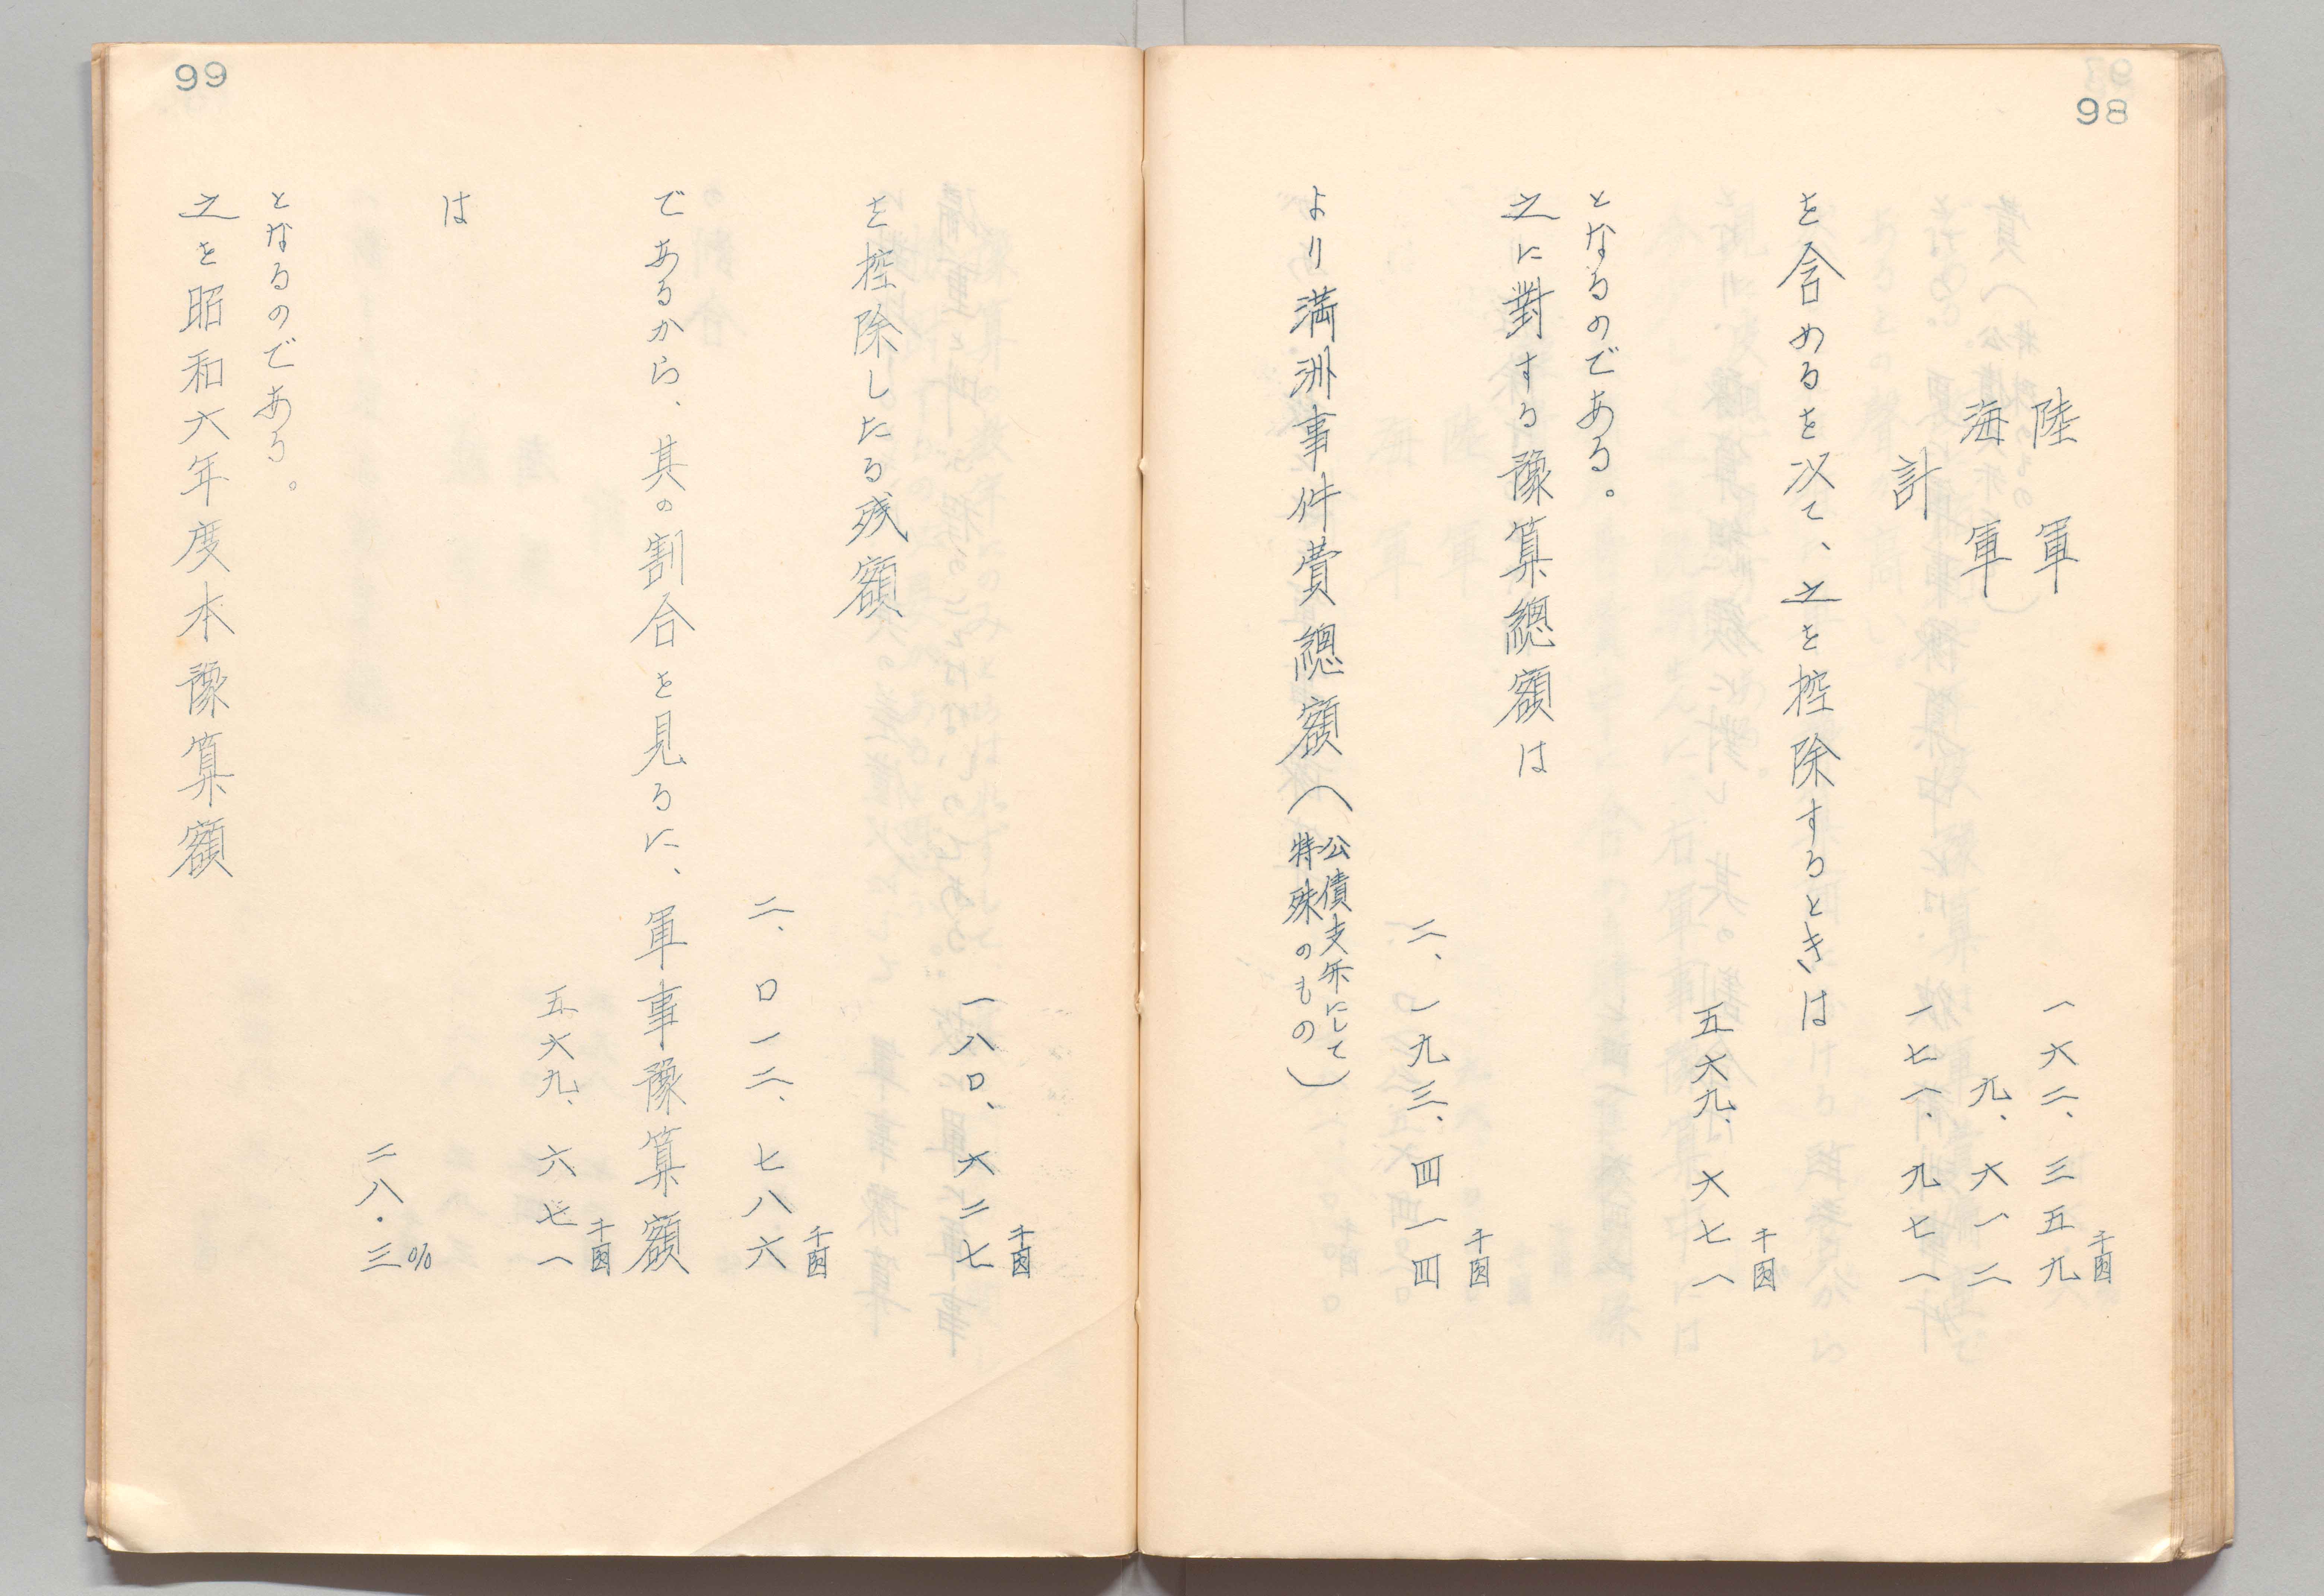 98
陸軍 一六二、三五九千圓
海軍 九、六一二
計 一七一、九七一
を含めるを以て、之を控除するときは
五六九、六七一千圓
となるのである。
之に對する豫算總額は
二、一九三、四一四千圓
より満洲事件費總額(公債支弁にして
特殊のもの)
99
一八〇、六二七千圓
を控除したる残額
二、〇一二、七八六千圓
であるから、其の割合を見るに、軍事豫算額
五六九、六七一千圓
は
二八・三%
となるのである。
之を昭和六年度本豫算額